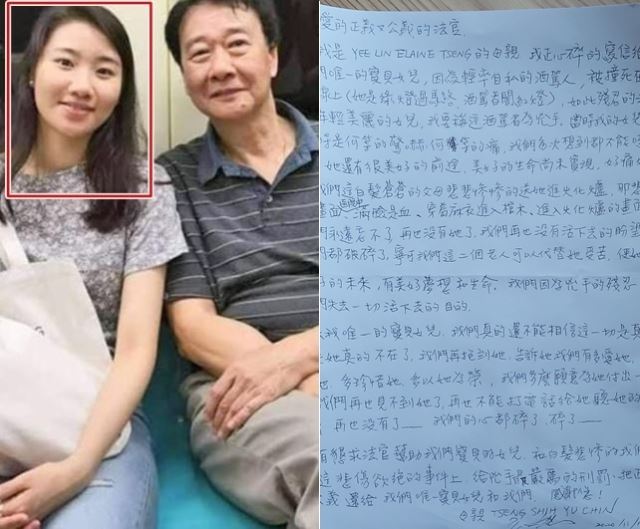 愛的正義又公義的法官
我是 YEE LIN ELAINE TSENG 的母親 我正心碎的寫信給
唯一的寶貝女兒，因為極其自私的酒駕人，被撞死在
上（她是綠燈過馬路，酒駕者闖紅燈），如此殘忍的
輕美麗的女兒，我要譴這酒駕者為兇手，當時我的女
是何等的驚嚇 何等的痛，我們多次想到都不能
她還有很美好的前途，美好的生命尚未實現，好痛
們這白髮蒼蒼的父母悲悲慘慘的送她進火化爐，那
畫面 滿臉是血、穿著壽衣進入棺木、進入火化爐的畫面
們永遠忘不了，再也沒有她了，我們再也沒有活下去的盼望
都破碎了，寧可我們這二個老人可以代替她受苦，使她
的未來，有美好夢想和生命，我們因為兇手的殘忍
失去一切活下去的目的
唯一的寶貝女兒，我們真的還不能相信這一切是真
她真的不在了，我們再抱到她，告訴她我們有多愛她
多珍惜她，多以她為榮，我們多麼願意為她付出一
我們再也見不到她了，再也不能打電話給她聽她的
再也沒有了—— 我們的心都碎了，碎了——
懇求法官幫助我們寶貝的女兒，和白髮悲慘的我們
這悲傷欲絕的事件上，給兇手最嚴厲的刑罰，把正
義還給我們唯一寶貝女兒和我們，感謝您！
母親 TSENG SHIH YU CHIN